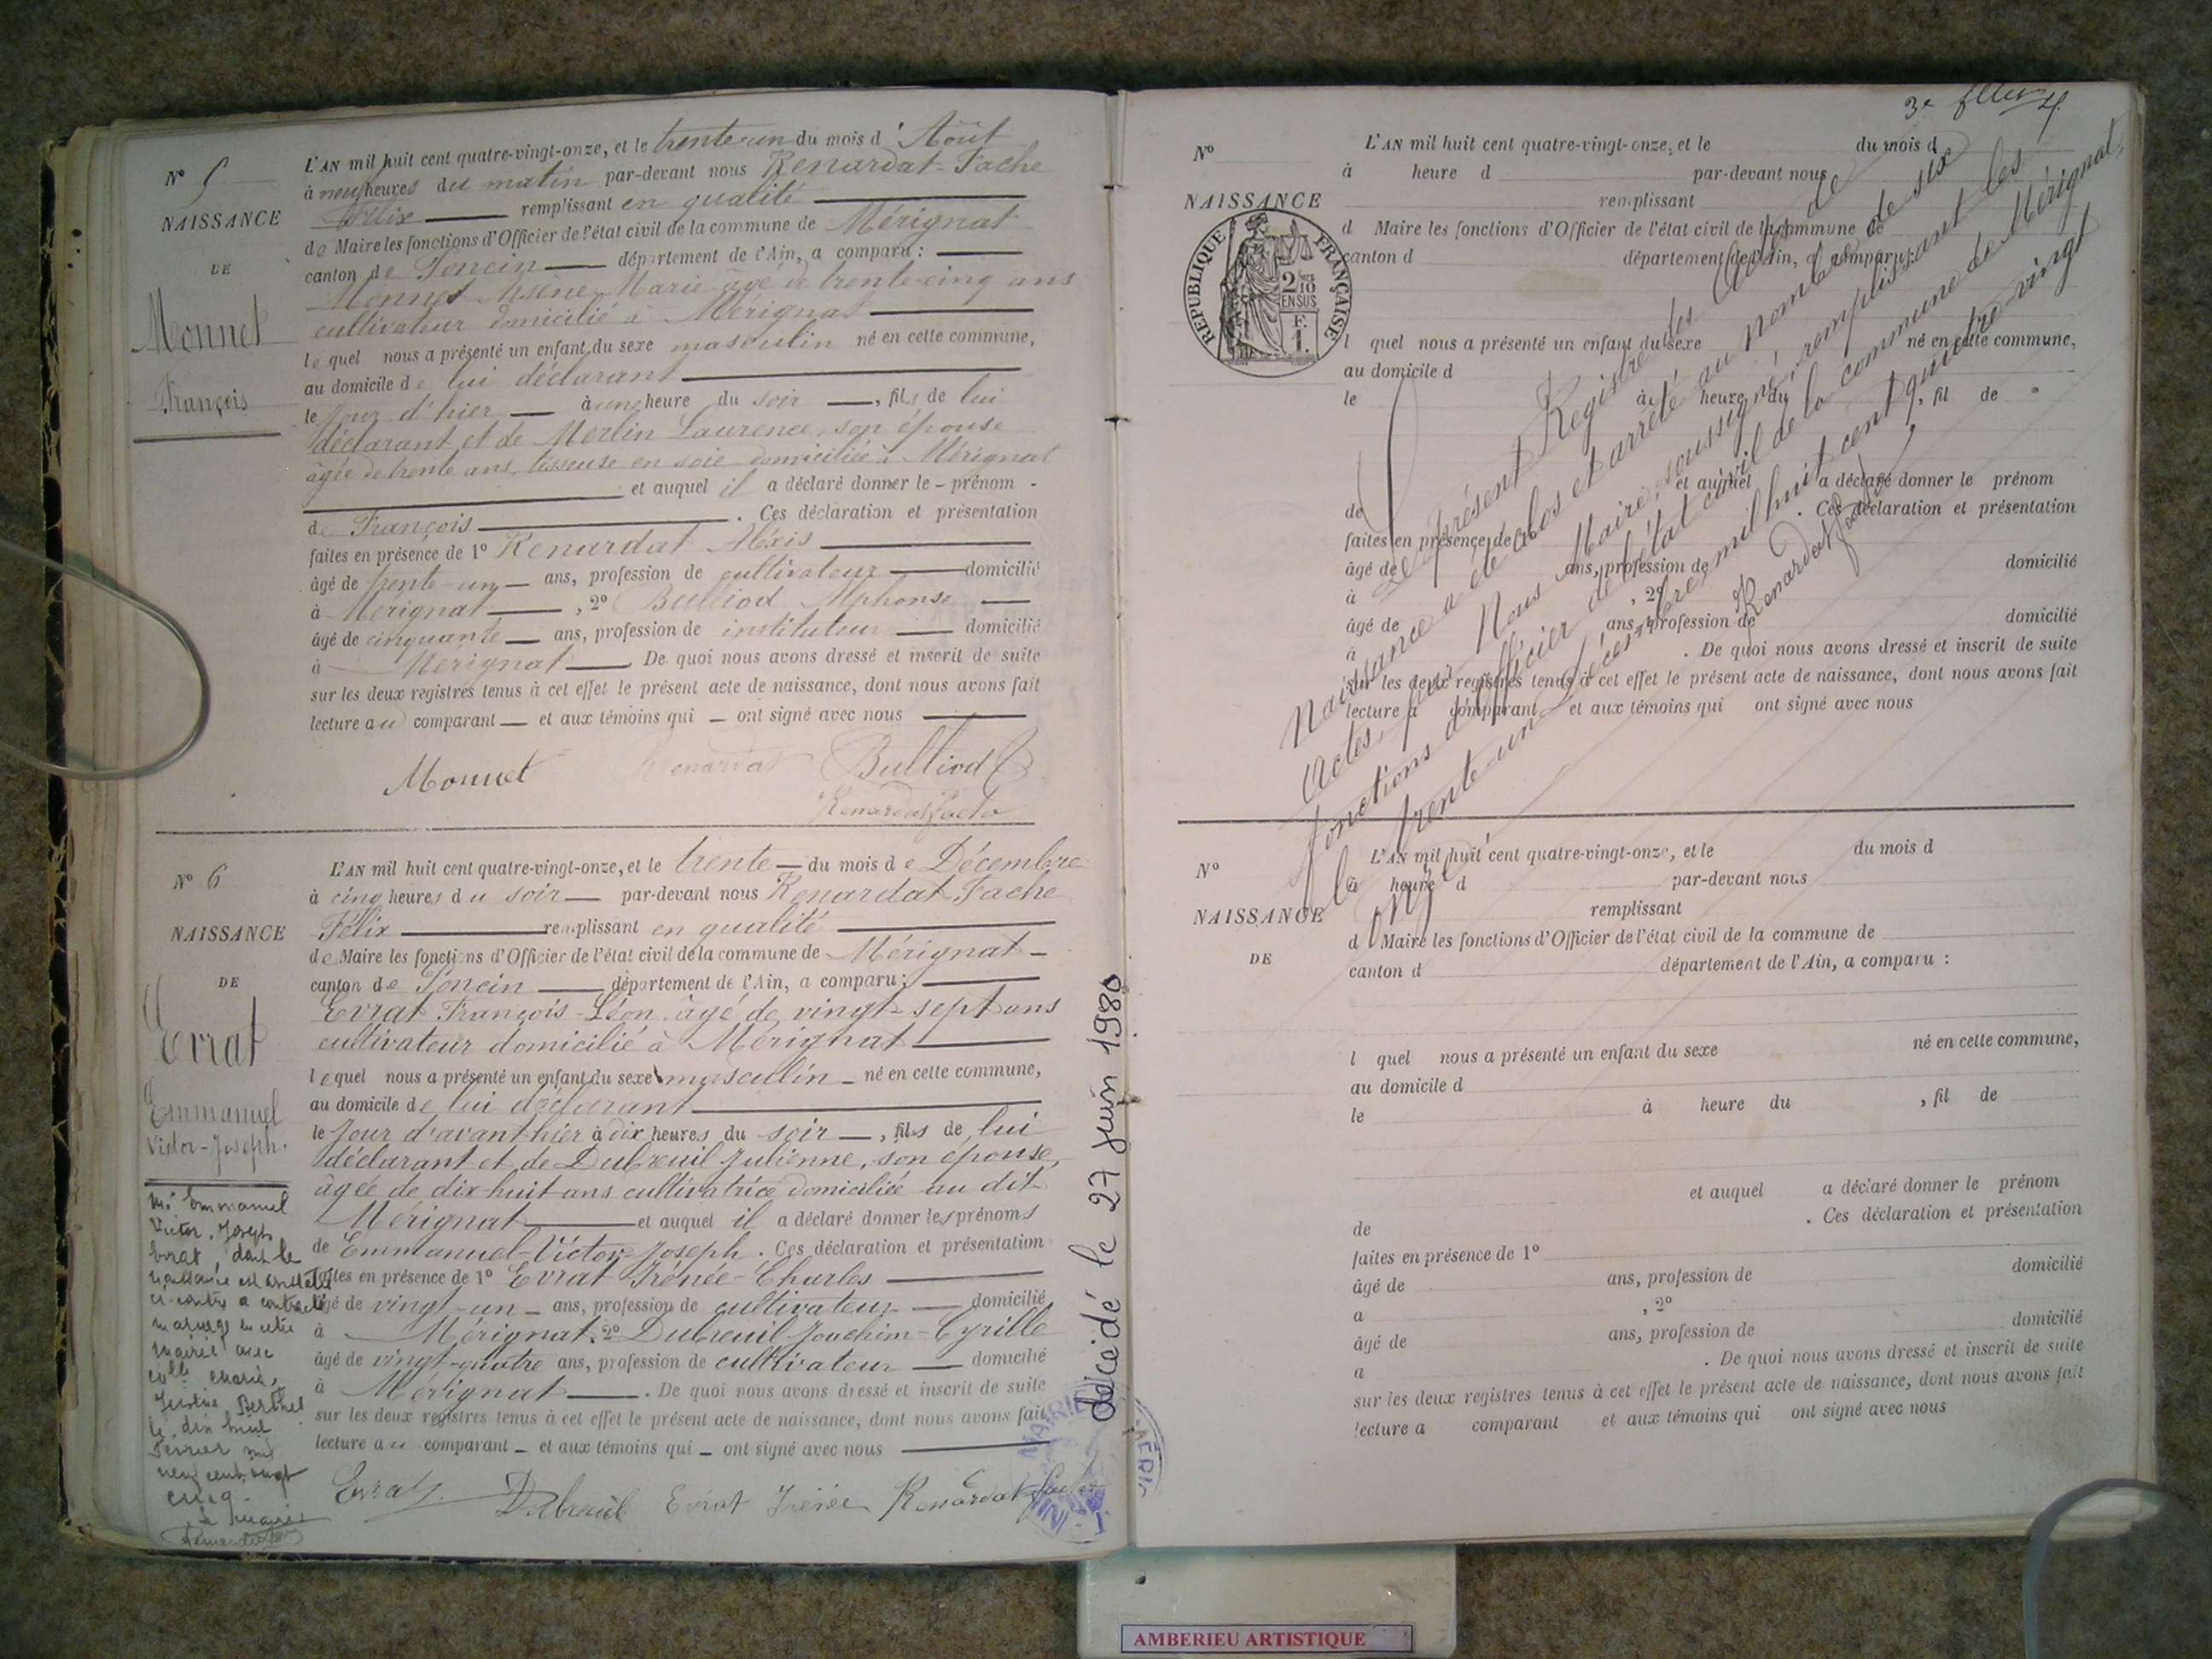 N° 5
NAISSANCE
DE
Monnet
François
L'AN mil huit cent quatre-vingt-onze, et le trente-un du mois d'Août
à neuf heures du matin par-devant nous Renardat-Fache
Félix remplissant en qualité
de Maire les fonctions d'Officier de l'état civil de la commune de Mérignat
canton de Poncin département de l'Ain, a comparu :
Monnet Arsène-Marie âgé de trente-cinq ans
cultivateur domicilié à Mérignat
lequel nous a présenté un enfant du sexe masculin né en cette commune,
au domicile de lui déclarant
le jour d'hier à une heure du soir, fils de lui
déclarant et de Merlin Laurence, son épouse
âgée de trente ans, tisseuse en soie domiciliée à Mérignat
et auquel il a déclaré donner le - prénom -
de François. Ces déclaration et présentation
faites en présence de 1° Renardat Alexis
âgé de trente-un ans, profession de cultivateur domicilié
à Mérignat, 2° Bulliod Alphonse
âgé de cinquante ans, profession de instituteur domicilié
à Mérignat. De quoi nous avons dressé et inscrit de suite
sur les deux registres tenus à cet effet le présent acte de naissance, dont nous avons fait
lecture au comparant et aux témoins qui ont signé avec nous
Monnet Renardat Bulliod
Renardat Fache
N° 6
NAISSANCE
DE
Evrat
Emmanuel
Victor-Joseph.
L'AN mil huit cent quatre-vingt-onze, et le trente du mois de Décembre
à cinq heures du soir par-devant nous Renardat-Fache
Félix remplissant en qualité
de Maire les fonctions d'Officier de l'état civil de la commune de Mérignat
canton de Poncin département de l'Ain, a comparu :
Evrat François-Léon âgé de vingt-sept ans
cultivateur domicilié à Mérignat
lequel nous a présenté un enfant du sexe masculin né en cette commune,
au domicile de lui déclarant
le jour d'avant-hier à dix heures du soir, fils de lui
déclarant et de Dubreuil Julienne, son épouse,
âgée de dix-huit ans cultivatrice domiciliée au dit
Mérignat et auquel il a déclaré donner les prénoms
de Emmanuel-Victor-Joseph. Ces déclaration et présentation
faites en présence de 1° Evrat Irénée-Charles
âgé de vingt-un ans, profession de cultivateur domicilié
à Mérignat, 2° Dubreuil Joachim-Cyrille
âgé de vingt-quatre ans, profession de cultivateur domicilié
à Mérignat. De quoi nous avons dressé et inscrit de suite
sur les deux registres tenus à cet effet le présent acte de naissance, dont nous avons fait
lecture au comparant et aux témoins qui ont signé avec nous
Evrat Dubreuil Evrat Irénée Renardat Fache
Mr Emmanuel
Victor, Joseph
Evrat, dont le
naissance est
ci-contre a contracté
mariage en cette
mairie avec
Marie,
Berthet
le dix huit
Février mil
neuf cent vingt
cinq.
Le Maire
décédé le 27 juin 1980
MAIRIE
3e
4
N°
NAISSANCE
RÉPUBLIQUE FRANÇAISE
2/10
EN SUS
F.
1.
L'AN mil huit cent quatre-vingt-onze, et le du mois d
à heure d par-devant nous
remplissant
d Maire les fonctions d'Officier de l'état civil de la commune de
canton d département de l'Ain, a comparu :
l quel nous a présenté un enfant du sexe né en cette commune,
au domicile d
le à heure du , fil de
et auquel a déclaré donner le prénom
de . Ces déclaration et présentation
faites en présence de
âgé de ans, profession de domicilié
à , 2°
âgé de ans, profession de domicilié
à . De quoi nous avons dressé et inscrit de suite
sur les deux registres tenus à cet effet le présent acte de naissance, dont nous avons fait
lecture a comparant et aux témoins qui ont signé avec nous
Le présent Registre des Actes de
Naissance a été clos et arrêté au nombre de six
Actes, par Nous Maire, soussigné, remplissant les
fonctions d'officier de l'état civil de la commune de Mérignat,
le trente-un décembre mil huit cent quatre-vingt
onze.
Renardat Fache
N°
NAISSANCE
DE
L'AN mil huit cent quatre-vingt-onze, et le du mois d
à heure d par-devant nous
remplissant
d Maire les fonctions d'Officier de l'état civil de la commune de
canton d département de l'Ain, a comparu :
l quel nous a présenté un enfant du sexe né en cette commune,
au domicile d
le à heure du , fil de
et auquel a déclaré donner le prénom
de . Ces déclaration et présentation
faites en présence de 1°
âgé de ans, profession de domicilié
a , 2°
âgé de ans, profession de domicilié
a . De quoi nous avons dressé et inscrit de suite
sur les deux registres tenus à cet effet le présent acte de naissance, dont nous avons fait
lecture a comparant et aux témoins qui ont signé avec nous
AMBERIEU ARTISTIQUE